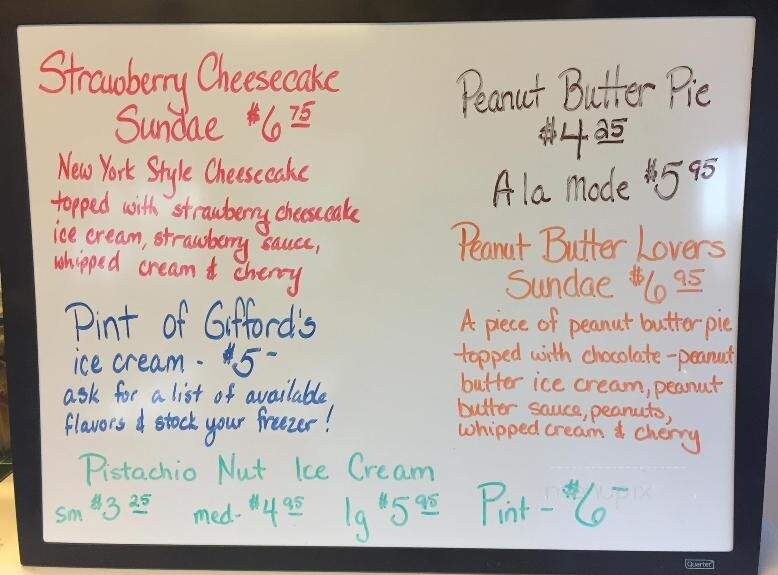 Strawberry Cheesecake
Sundae $6 75
New York Style Cheesecake
topped with strawberry cheesecake
ice cream, strawberry sauce,
whipped cream & cherry
Pint of Gifford's
ice cream - $5-
ask for a list of available
flavors & stock your freezer!
Peanut Butter Pie
$4 25
A la mode $5 95
Peanut Butter Lovers
Sundae $6 95
A piece of peanut butter pie
topped with chocolate-peanut
butter ice cream, peanut
butter sauce, peanuts,
whipped cream & cherry
Pistachio Nut Ice Cream
sm $3 25 med- $4 95 lg $5 95 Pint - $6-
Quartet